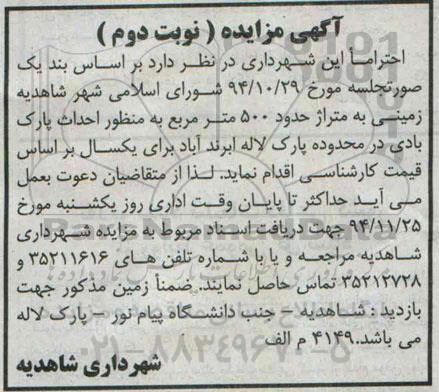 آگهی مزایده ( نوبت دوم )
احتراماً این شهرداری در نظر دارد بر اساس بند یک
صورتجلسه مورخ ۹۴/۱۰/۲۹ شورای اسلامی شهر شاهدیه
زمینی به متراژ حدود ۵۰۰ متر مربع به منظور احداث پارک
بادی در محدوده پارک لاله ابرند آباد برای یکسال بر اساس
قیمت کارشناسی اقدام نماید. لذا از متقاضیان دعوت بعمل
می آید حداکثر تا پایان وقت اداری روز یکشنبه مورخ
۹۴/۱۱/۲۵ جهت دریافت اسناد مربوط به مزایده شهرداری
شاهدیه مراجعه و یا با شماره تلفن های ۳۵۲۱۱۶۱۶ و
۳۵۲۱۲۷۲۸ تماس حاصل نمایند. ضمناً زمین مذکور جهت
بازدید : شاهدیه - جنب دانشگاه پیام نور - پارک لاله
می باشد. ۴۱۴۹ م الف
شهرداری شاهدیه
۰۲۱-۸۸۳۴۹۶۷۰-۵